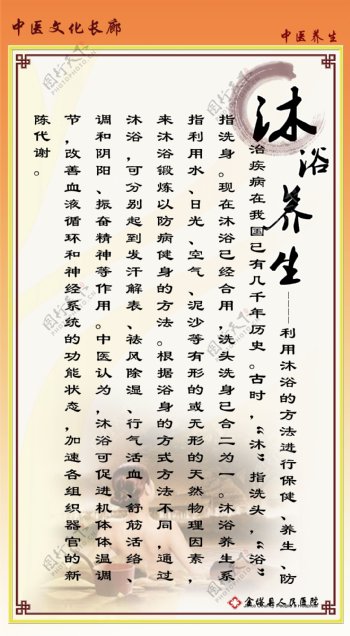 中医文化长廊
中医养生
沐浴养生
——利用沐浴的方法进行保健、养生、防
治疾病在我国已有几千年历史。古时，“沐”指洗头，“浴”
指洗身。现在沐浴已经合用，洗头洗身已合二为一。沐浴养生系
指利用水、日光、空气、泥沙等有形的或无形的天然物理因素，
来沐浴锻炼以防病健身的方法。根据浴身的方式方法不同，通过
沐浴，可分别起到发汗解表、祛风除湿、行气活血、舒筋活络、
调和阴阳、振奋精神等作用。中医认为，沐浴可促进机体体温调
节，改善血液循环和神经系统的功能状态，加速各组织器官的新
陈代谢。